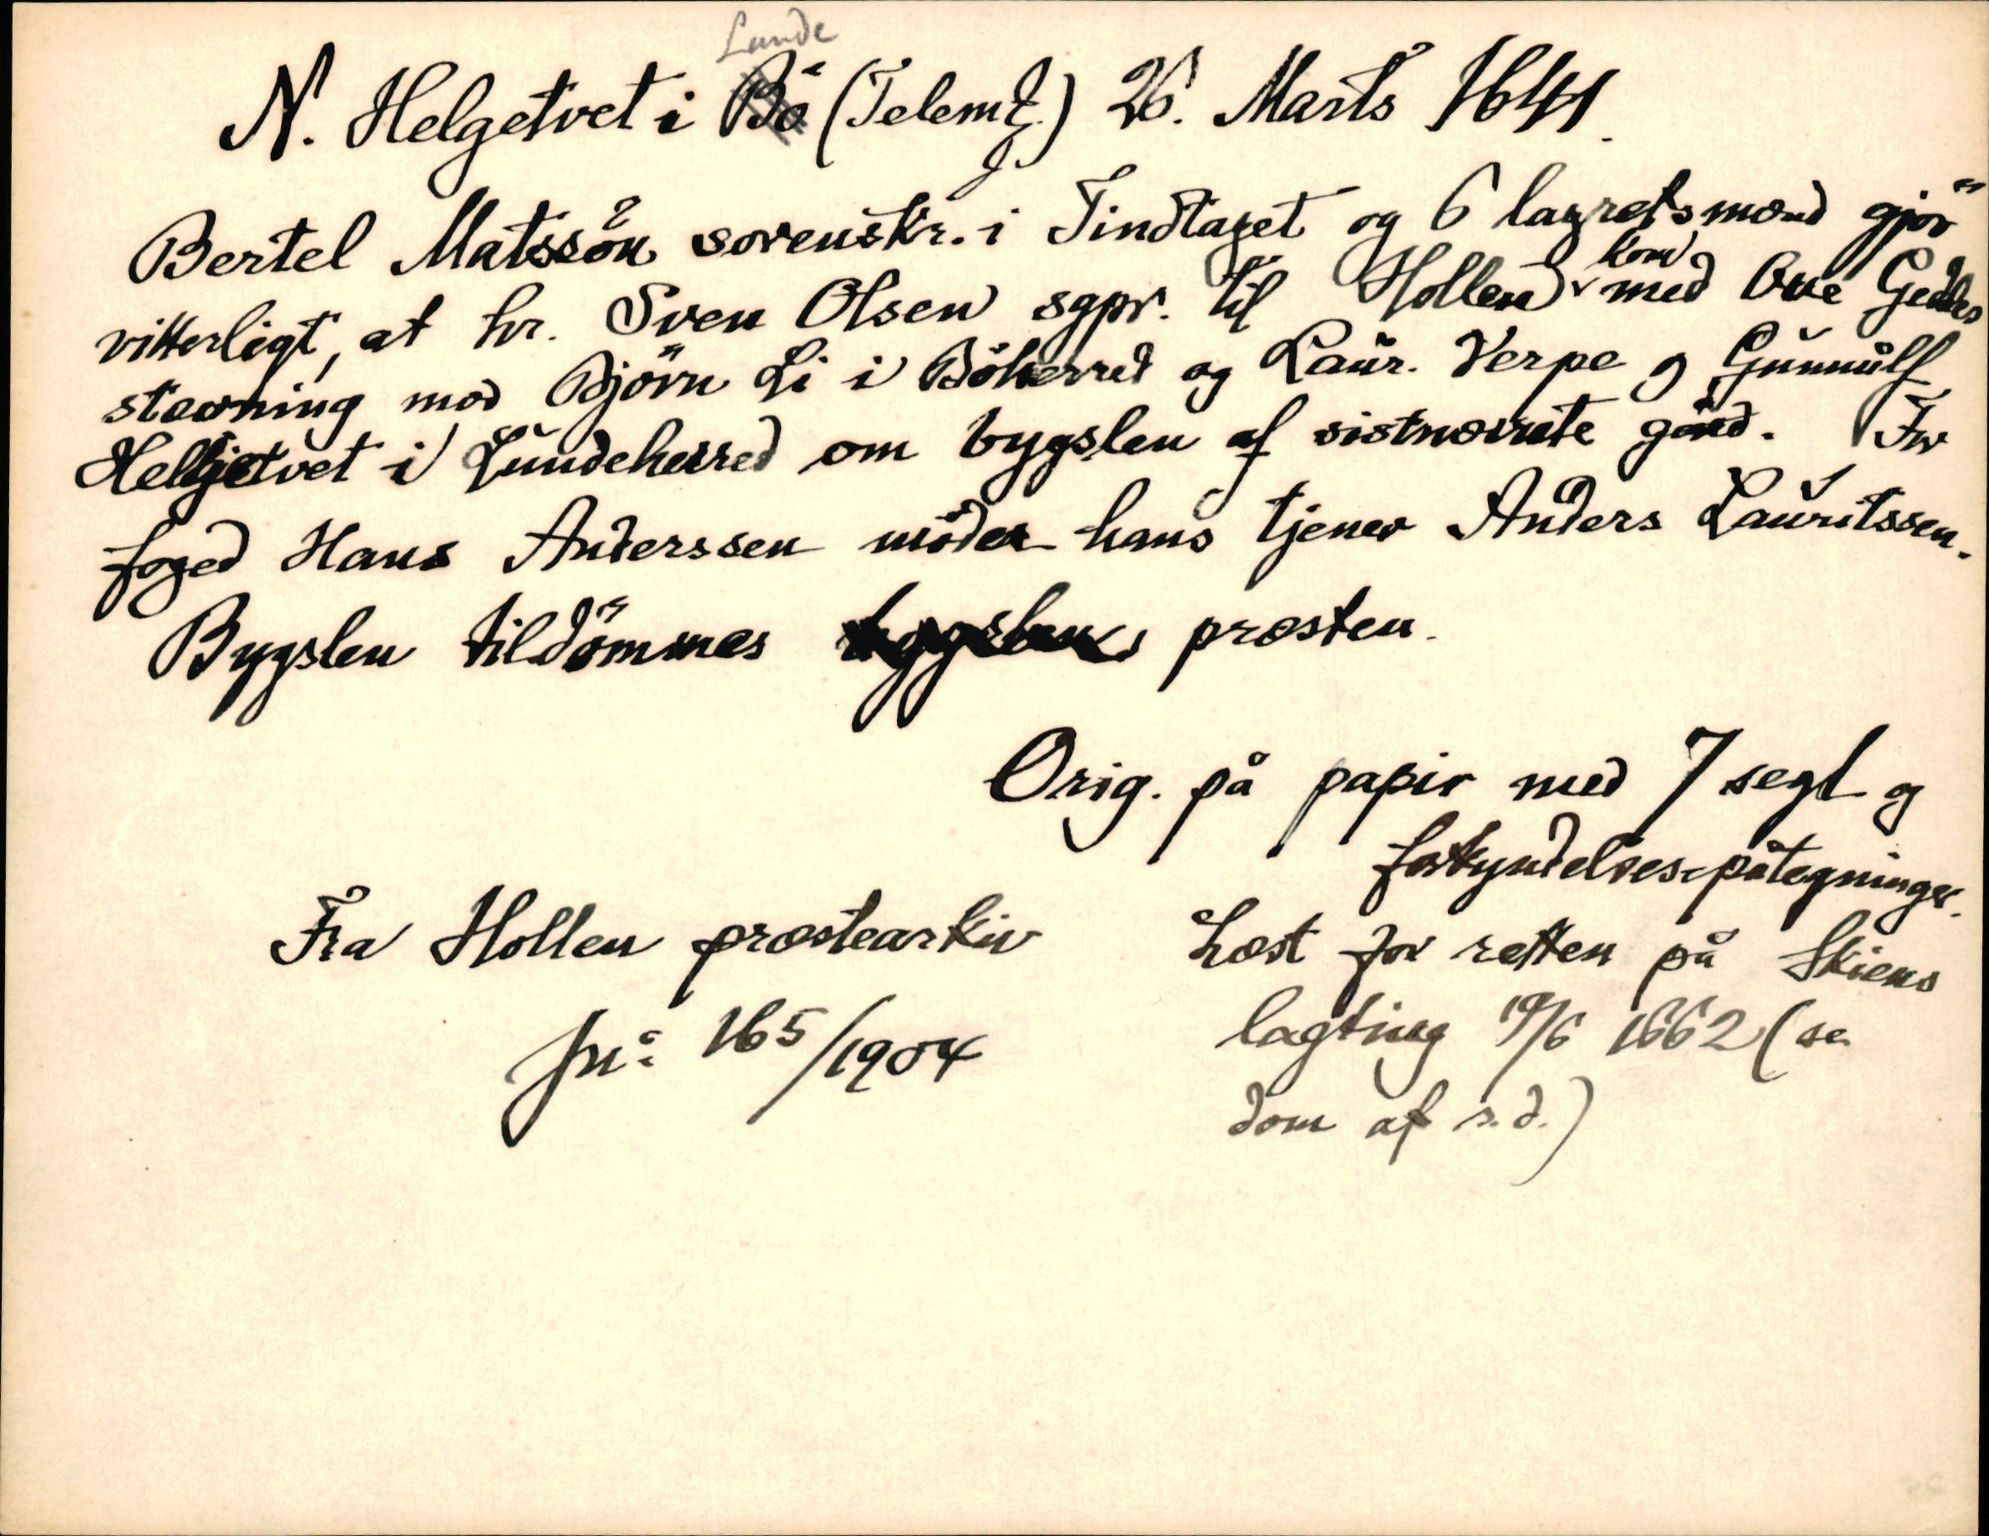 Lunde
N. Helgetvet i Bö (Telemk.) 26. Marts 1641.
Bertel Matssön sorenskr. i Tindtaget og 6 lagretsmænd gjör
vitterligt, at hr. Sven Olsen sgpr. til Hollen kom med Ove Geddes
stævning mod Björn Li i Böherred og Laur. Verpe og Gunnulf
Helgetvet i Lundeherred om bygslen af sistnævnte gård. For
foged Hans Anderssen möder hans tjener Anders Lauritssen.
Bygslen tildömmes bygslens præsten.
Orig. på papir med 7 segl og
forkyndelses-påtegninger.
Fra Hollen præstearkiv
jn: 165/1904
Læst for retten på Skiens
lagting 19/6 1662 (se
dom af s.d.)